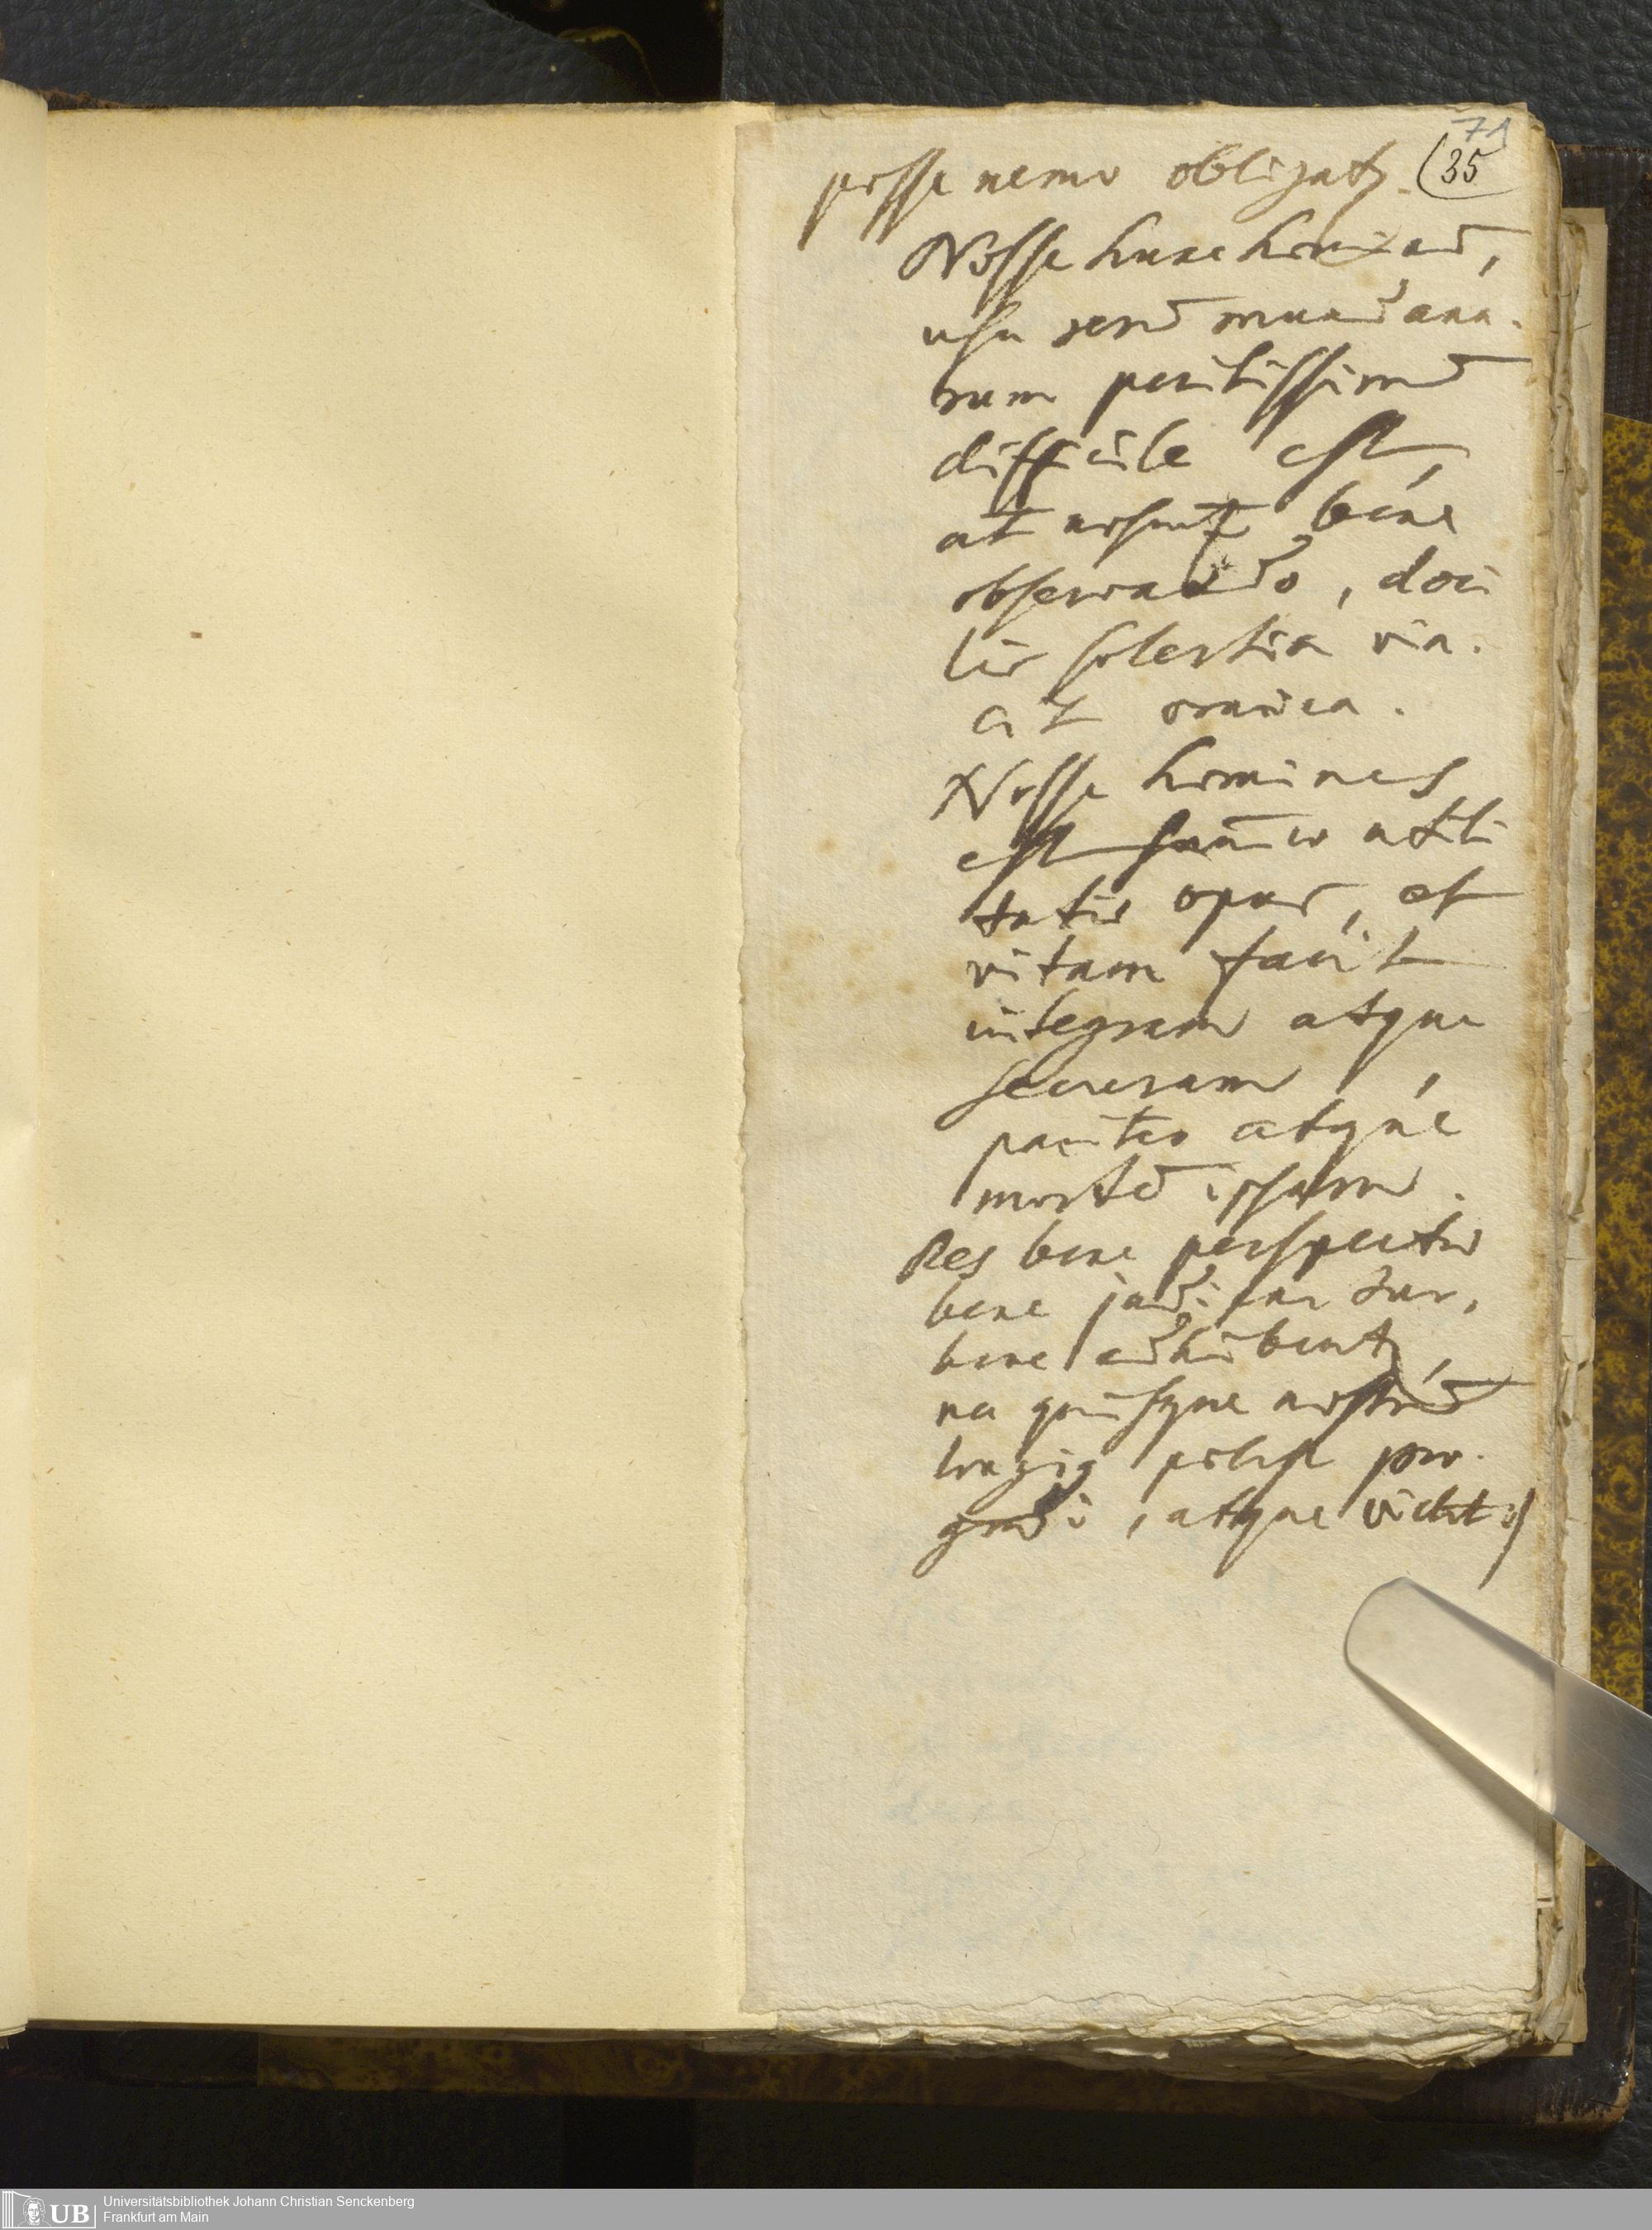 71
posse nemo obligatʒ. (35
Nosse hunc hominē,
usu rerū mundana-
rum peritissimū
difficile est,
at nosciтʒ bene
observando, doci
lis solertia vin-
cit omnia.
Nosse homines
est sum̄ae utili
tatis opus, et
vitam facit
integram atque
securam,
pariter atque
mortē ipsam.
Res bene perspectae
bene judicantur,
bene adhibentʒ,
nec quisque nostrū
longiʒ potest pro-
gredi, atque
UB Universitätsbibliothek Johann Christian Senckenberg
Frankfurt am Main